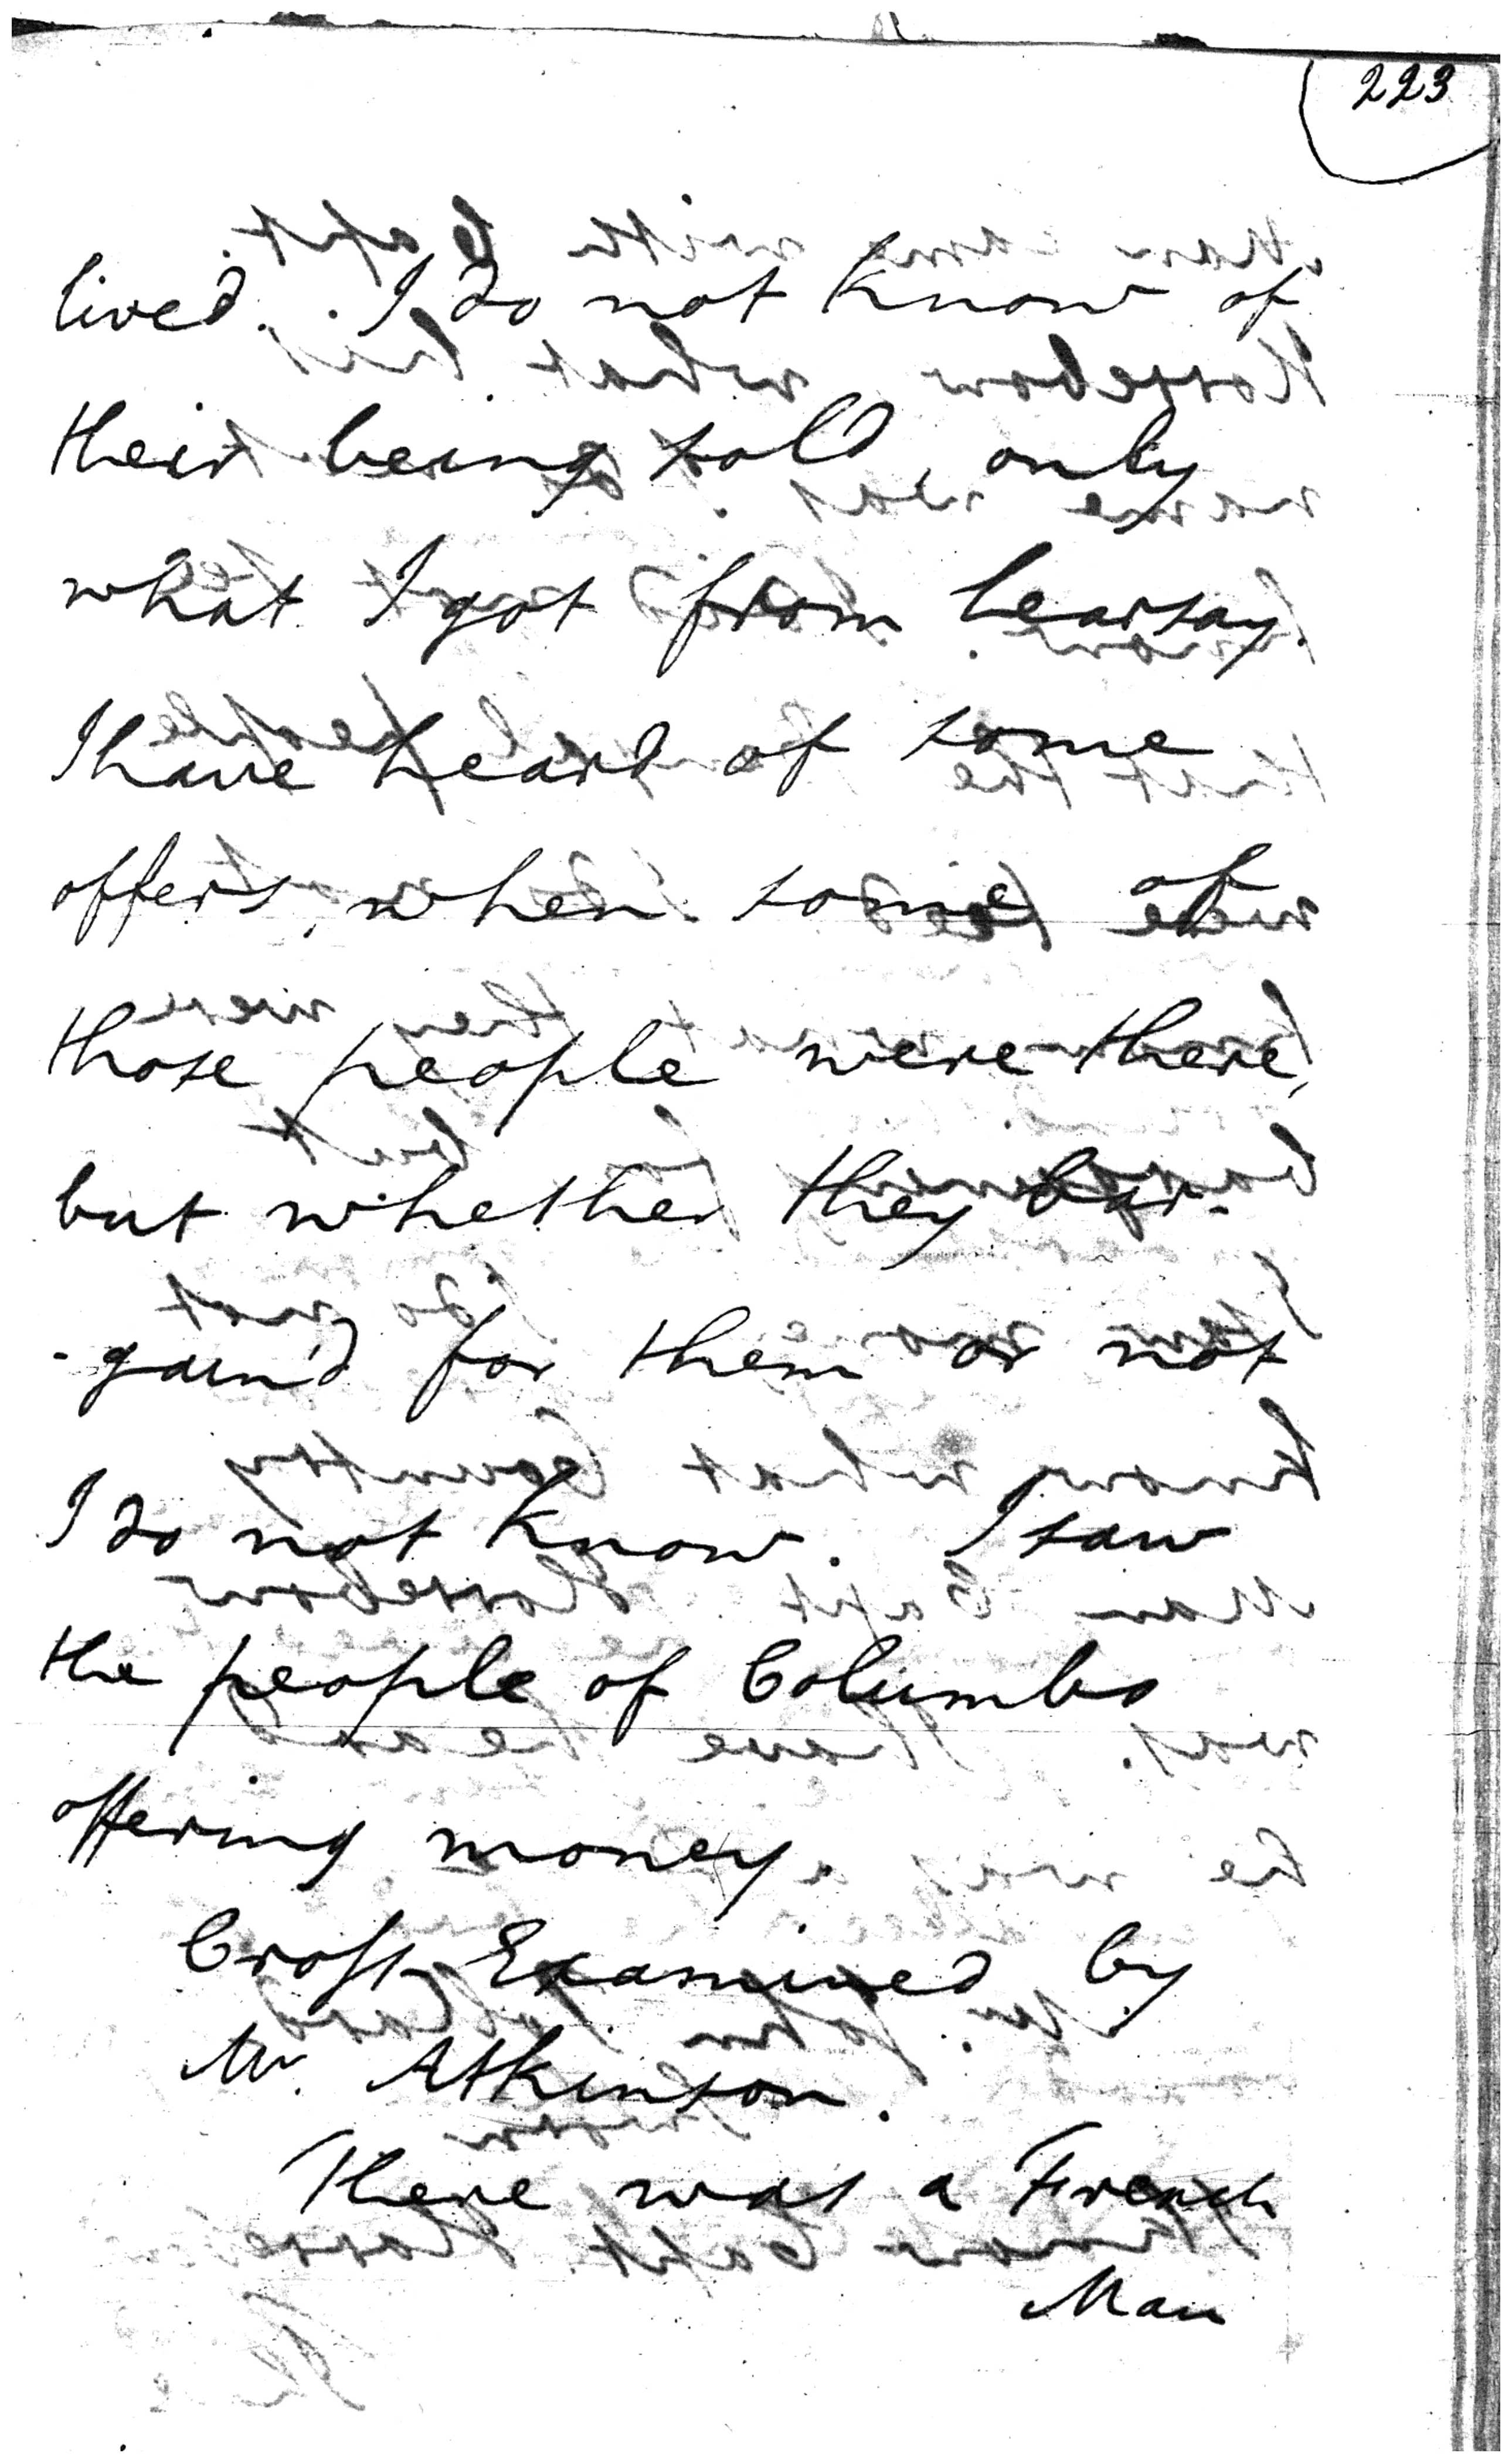 223
lived. I do not know of
their being sold, only
what I got from hearsay.
I have heard of some
offers, when some of
those people were there,
but whether they bar-
-gain'd for them or not
I do not know. I saw
the people of Columbo
offering money.
Cross-Examined by
Mr. Atkinson.
There was a French
Man